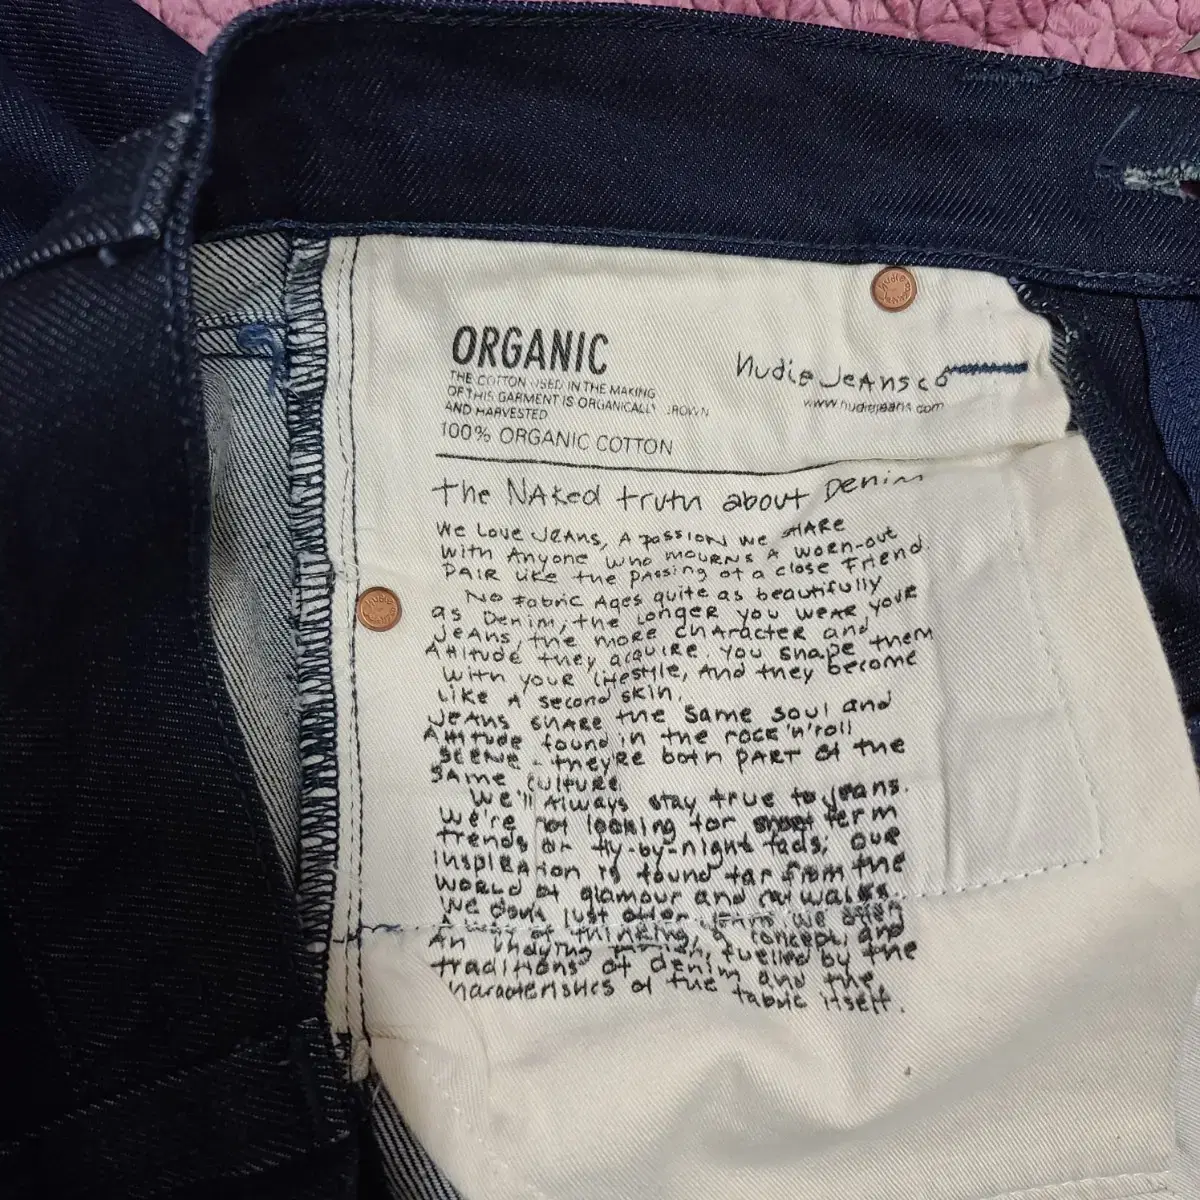 ORGANIC
THE COTTON USED IN THE MAKING
OF THIS GARMENT IS ORGANICALLY GROWN
AND HARVESTED
100% ORGANIC COTTON
Nudie Jeans co
www.nudiejeans.com
The Naked truth about Denim
We Love Jeans, A passion we SHARE
with Anyone who mourns A worn-out
PAIR like the passing of a close Friend.
No Fabric Ages quite as beautifully
as Denim, the Longer you wear your
Jeans, the more character and
Attitude they acquire. You shape them
with your lifestyle, And they become
like A second skin.
Jeans share the same soul and
Attitude found in the rock'n'roll
scene - they're both PART of the
same culture.
We'll Always stay true to jeans.
We're not looking for short term
trends or fly-by-night fads; our
inspiration is found far from the
world of glamour and catwalks.
We don't just offer we offer
A way of thinking, a concept, and
An undying fuelled by the
traditions of denim and the
characteristics of the fabric itself.
nudie
jeans
nudie